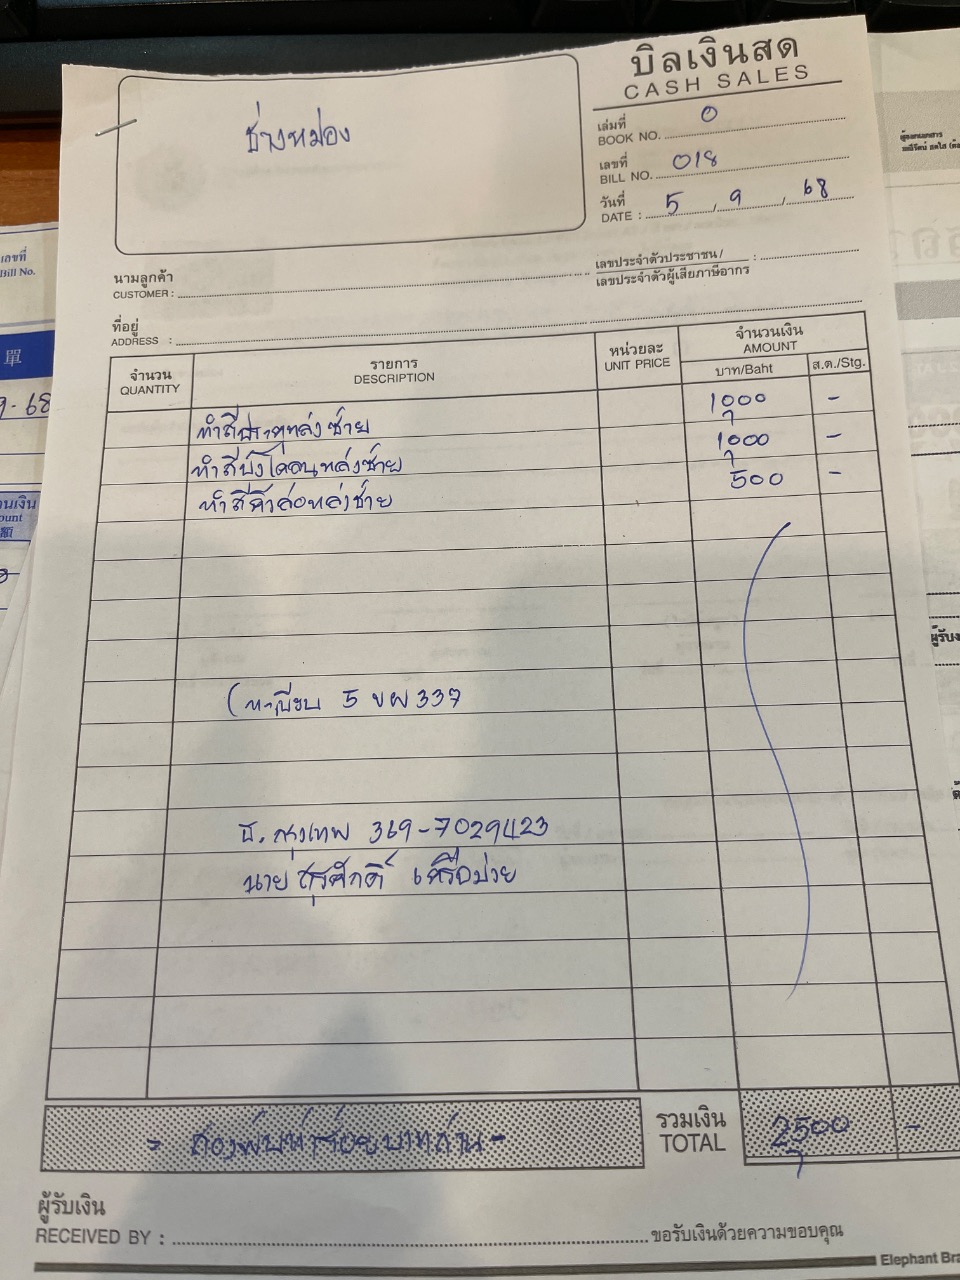 บิลเงินสด
CASH SALES
ช่างหม่อง
เล่มที่
BOOK NO. 0
เลขที่
BILL NO. 018
วันที่
DATE : 5 / 9 / 68
นามลูกค้า
CUSTOMER :
เลขประจำตัวประชาชน /
เลขประจำตัวผู้เสียภาษีอากร :
ที่อยู่
ADDRESS :
จำนวน รายการ หน่วยละ จำนวนเงิน
QUANTITY DESCRIPTION UNIT PRICE AMOUNT
บาท/Baht ส.ต./Stg.
ทำสีประตูหลังซ้าย 1,000 -
ทำสีบังโคลนหลังซ้าย 1,000 -
ทำสีคิ้วล้อหลังซ้าย 500 -
(ทะเบียน 5 ขผ 337
ธ. กรุงเทพ 369-7029423
นาย สุรศักดิ์
- สองพันห้าร้อยบาทถ้วน -
รวมเงิน
TOTAL 2,500 -
ผู้รับเงิน
RECEIVED BY : ขอรับเงินด้วยความขอบคุณ
Elephant Bra
เลขที่
Bill No.
單
9-68
นเงิน
ount
額
ผู้รับง